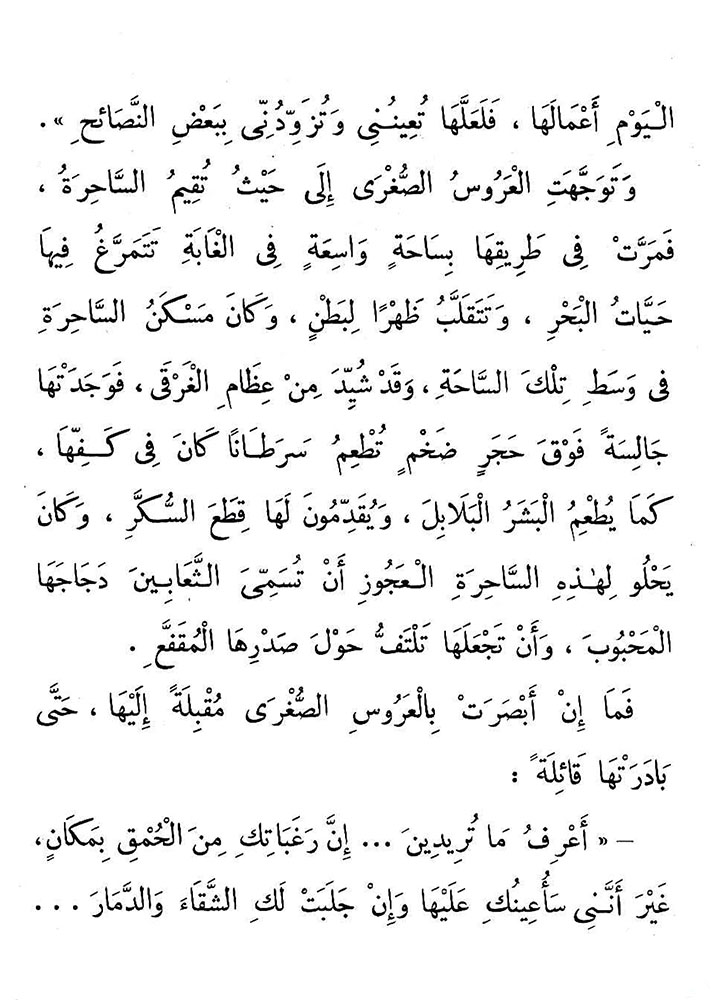 الْيَوْمِ أَعْمَالَهَا ، فَلَعَلَّهَا تُعِينُنِى وَتُزَوِّدُنِّى بِبَعْضِ النَّصَائِحِ » .
وَتَوَجَّهَتِ الْعَرُوسُ الصُّغْرَى إِلَى حَيْثُ تُقِيمُ السَّاحِرَةُ ،
فَمَرَّتْ فِى طَرِيقِهَا بِسَاحَةٍ وَاسِعَةٍ فِى الْغَابَةِ تَتَمَرَّغُ فِيهَا
حَيَّاتُ الْبَحْرِ ، وَتَتَقَلَّبُ ظَهْرًا لِبَطْنٍ ، وَكَانَ مَسْكَنُ السَّاحِرَةِ
فِى وَسَطِ تِلْكَ السَّاحَةِ ، وَقَدْ شُيِّدَ مِنْ عِظَامِ الْغَرْقَى ، فَوَجَدَتْهَا
جَالِسَةً فَوْقَ حَجَرٍ ضَخْمٍ تُطْعِمُ سَرَطَانًا كَانَ فِى كَفِّهَا ،
كَمَا يُطْعِمُ الْبَشَرُ الْبَلَابِلَ ، وَيُقَدِّمُونَ لَهَا قِطَعَ السُّكَّرِ ، وَكَانَ
يَحْلُو لِهٰذِهِ السَّاحِرَةِ الْعَجُوزِ أَنْ تُسَمِّىَ الثَّعَابِينَ دَجَاجَهَا
الْمَحْبُوبَ ، وَأَنْ تَجْعَلَهَا تَلْتَفُّ حَوْلَ صَدْرِهَا الْمُقَفَّعِ .
فَمَا إِنْ أَبْصَرَتْ بِالْعَرُوسِ الصُّغْرَى مُقْبِلَةً إِلَيْهَا ، حَتَّى
بَادَرَتْهَا قَائِلَةً :
– « أَعْرِفُ مَا تُرِيدِينَ ... إِنَّ رَغَبَاتِكِ مِنَ الْحُمْقِ بِمَكَانٍ ،
غَيْرَ أَنَّنِى سَأُعِينُكِ عَلَيْهَا وَإِنْ جَلَبَتْ لَكِ الشَّقَاءَ وَالدَّمَارَ ...